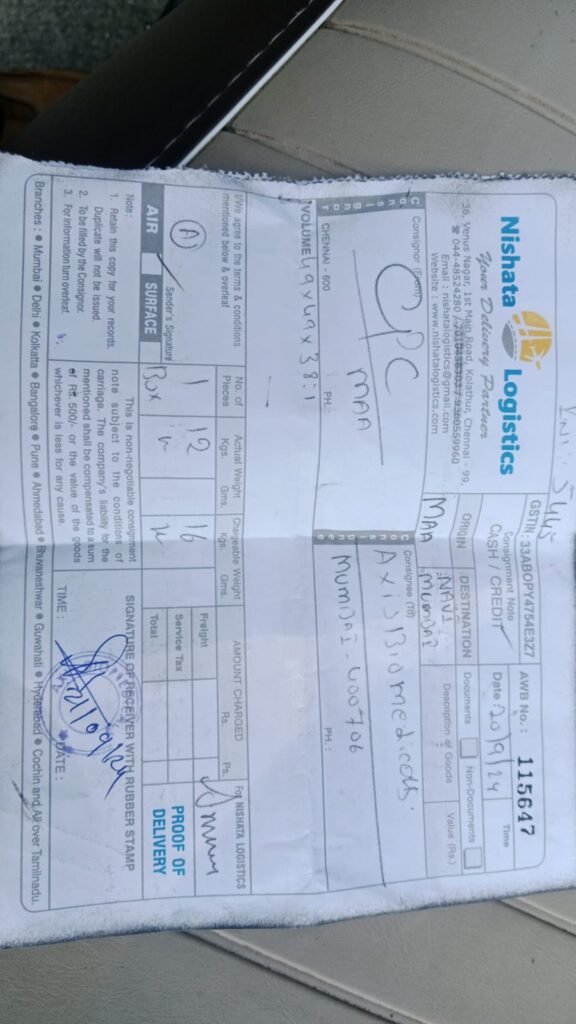 INV: 5445
Nishata Logistics
Your Delivery Partner
36, Venus Nagar, 1st Main Road, Kolathur, Chennai - 99.
☎ 044-48524280 / 9380559960
Email : nishatalogistics@gmail.com
Website : www.nishatalogistics.com
GSTIN: 33ABOPY4754E3Z7
Consignment Note
CASH / CREDIT
AWB No. : 115647
Date : 20/9/24
Time
ORIGIN
MAA
DESTINATION
NAVI
MUMBAI
Documents
Non-Documents
Description of Goods
Value (Rs.)
Consignor
Consignor (From)
CPC
MAA
CHENNAI - 600
PH. :
Consignee
Consignee (To)
Axis Biomedicals.
MUMBAI - 400706
PH. :
VOLUME 49 x 49 x 38 : 1
I/We agree to the terms & conditions
mentioned below & overleaf
Sender's Signature
AIR
SURFACE
No. of
Pieces
1
Box
Actual Weight
Kgs. Gms.
12
Chargeable Weight
Kgs. Gms.
16
AMOUNT CHARGED
Rs. Ps.
Freight
Service Tax
Total
For NISHATA LOGISTICS
PROOF OF
DELIVERY
Note :
1. Retain this copy for your records.
Duplicate will not be issued.
2. To be filled by the Consignor.
3. For information turn overleaf.
This is non-negotiable consignment
note subject to the conditions of
carriage. The company's liability for the
mentioned shall be compensated to a sum
of Rs. 500/- or the value of the goods
whichever is less for any cause.
SIGNATURE OF RECEIVER WITH RUBBER STAMP
TIME :
DATE :
Branches : ● Mumbai ● Delhi ● Kolkatta ● Bangalore ● Pune ● Ahmedabad ● Bhuvaneshwar ● Guwahati ● Hyderabad ● Cochin and All over Tamilnadu.